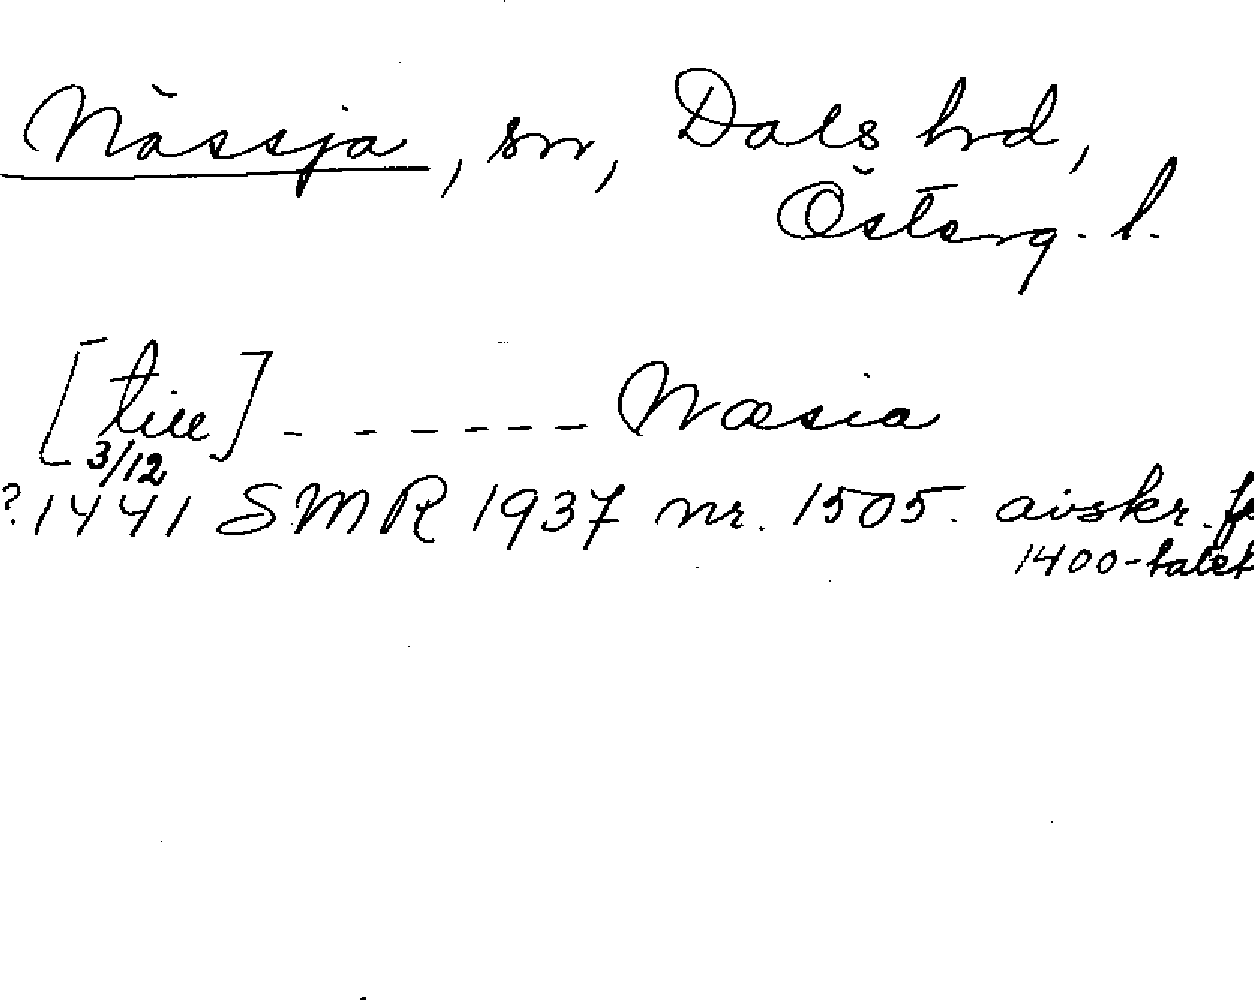 Nässja, sn, Dals hrd,
Österg. l.
[till] - - - - - - Næsia
3/12
? 1441 SMR 1937 nr. 1505. avskr. fr
1400-talet